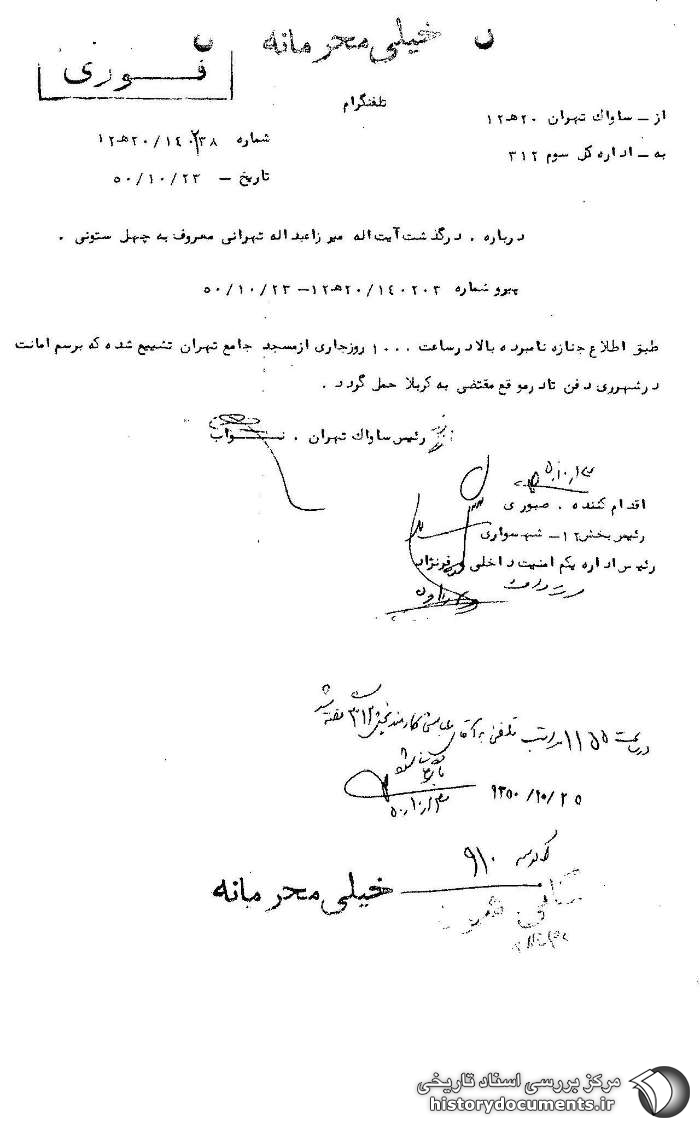 خیلی محرمانه
فوری
تلفنگرام
از – ساواك تهران ۲۰ه‍۱۲
به – اداره کل سوم ۳۱۲
شماره ۱۴۰۲۳۸/۲۰ه‍۱۲
تاریخ – ۵۰/۱۰/۲۳
درباره . درگذشت آیت اله میرزا عبداله تهرانی معروف به چهل ستونی .
پیرو شماره ۱۴۰۲۰۳/۲۰ه‍۱۲– ۵۰/۱۰/۲۳
طبق اطلاع جنازه نامبرده بالا در ساعت ۱۰۰۰ روز جاری از مسجد جامع تهران تشییع شده که برسم امانت
در شهرری دفن تا در موقع مقتضی به کربلا حمل گردد .
رئیس ساواك تهران . نواب
اقدام کننده . صبوری
رئیس بخش ۱۲– شهسواری
رئیس اداره یکم امنیت داخلی فرنژاد
در ساعت ۱۱۵۵ مراتب تلفنی به آقای عباسی کارمند بخش ۳۱۲ گفته شد
۱۳۵۰/۱۰/۲۵
کلاسه ۹۱۰
خیلی محرمانه
مرکز بررسی اسناد تاریخی
historydocuments.ir